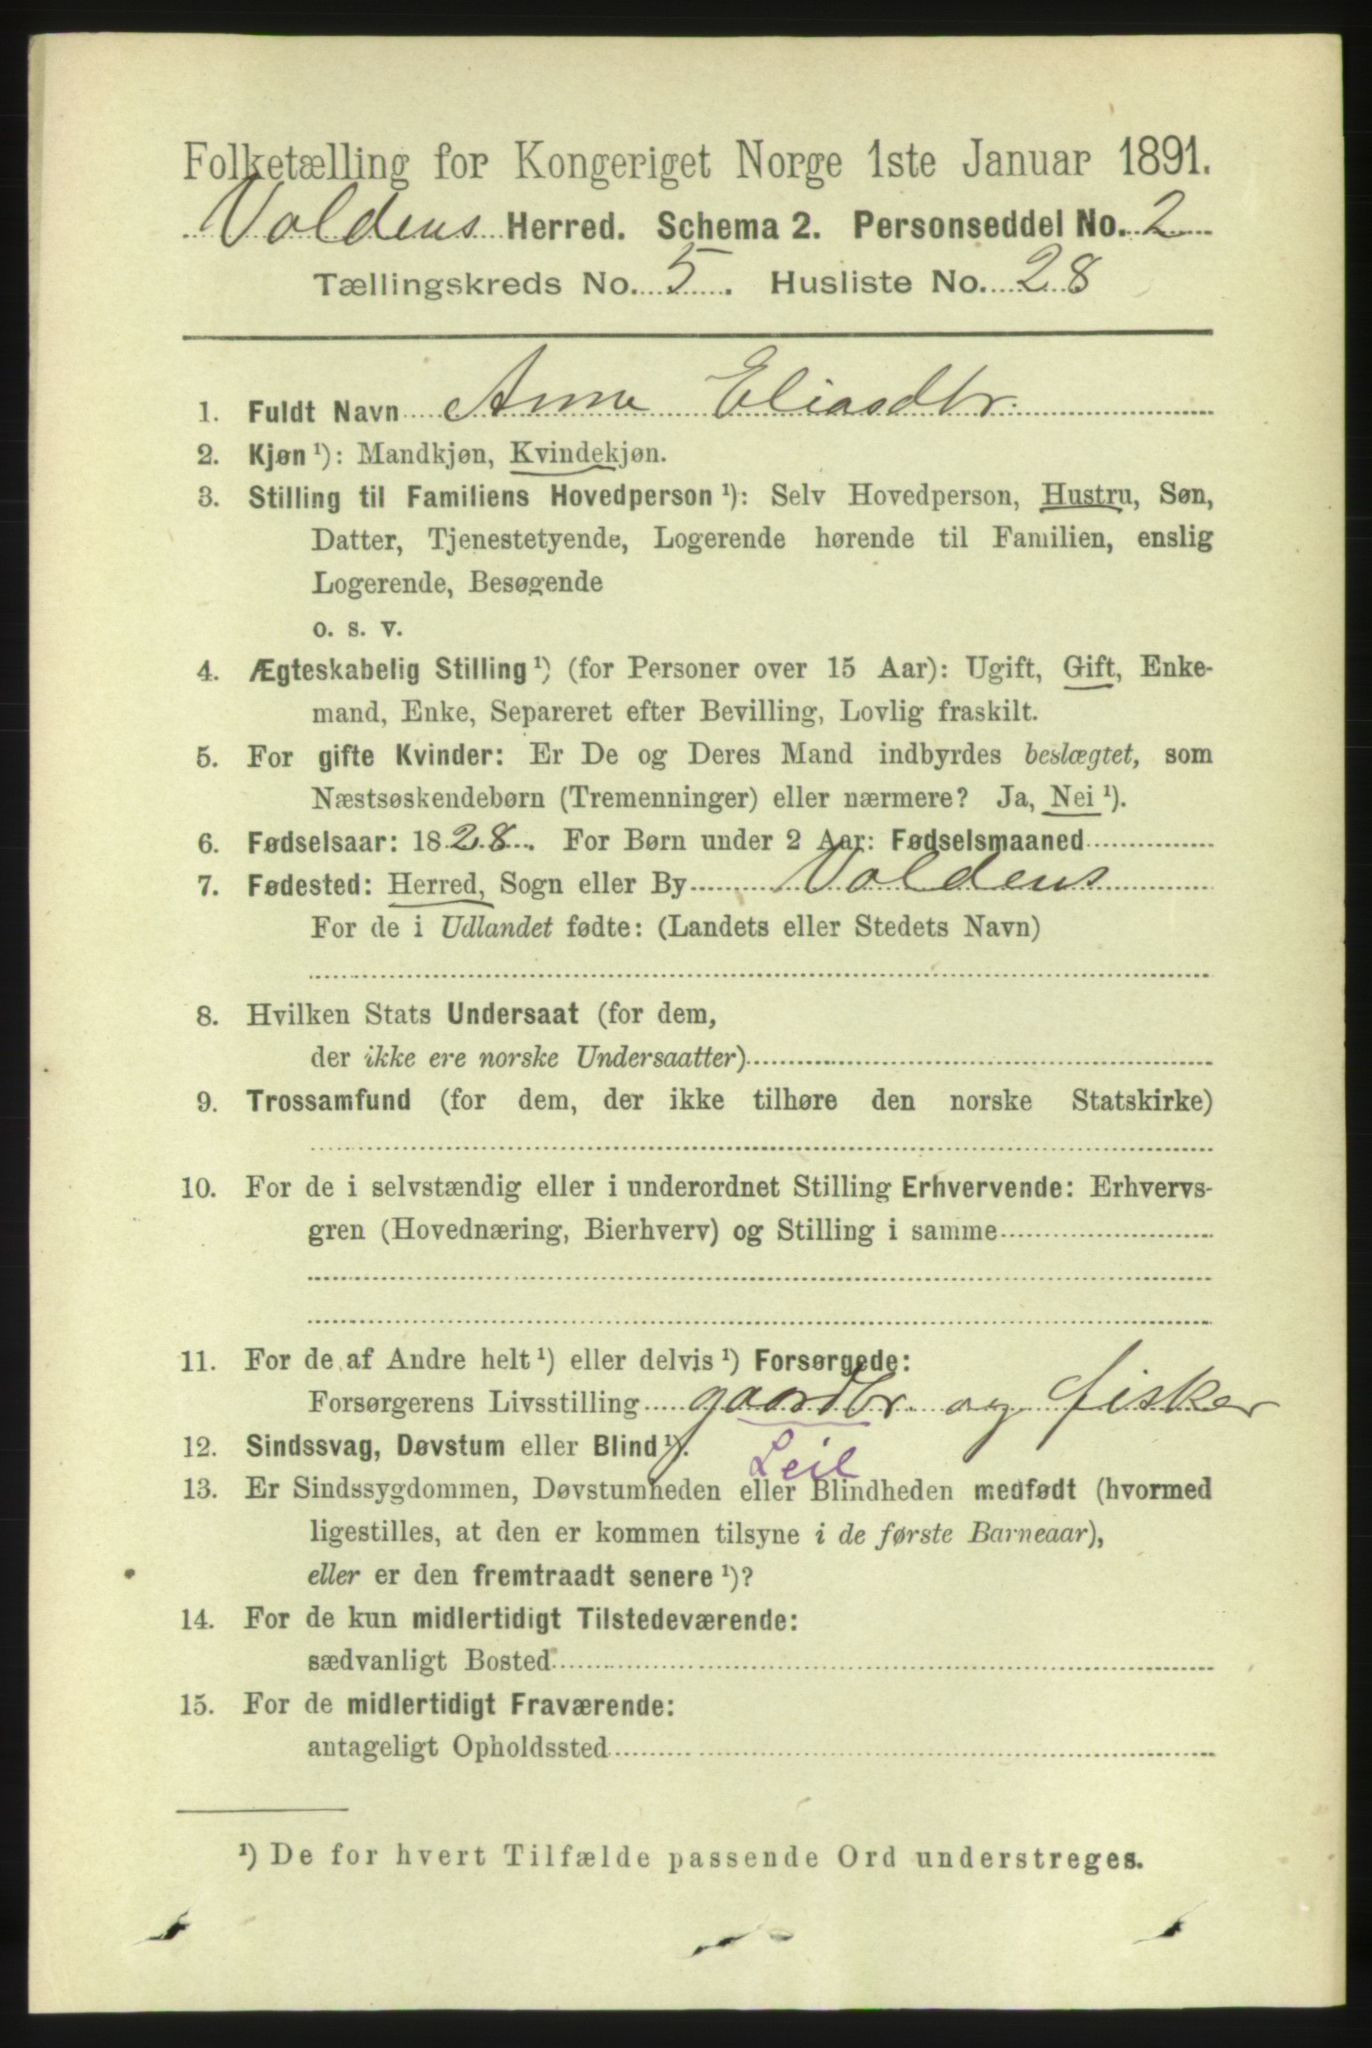 Folketælling for Kongeriget Norge 1ste Januar 1891.
Voldens Herred. Schema 2. Personseddel No. 2
Tællingskreds No. 5. Husliste No. 28
1. Fuldt Navn Anne Eliasdtr.
2. Kjøn ¹): Mandkjøn, Kvindekjøn.
3. Stilling til Familiens Hovedperson ¹): Selv Hovedperson, Hustru, Søn,
Datter, Tjenestetyende, Logerende hørende til Familien, enslig
Logerende, Besøgende
o. s. v.
4. Ægteskabelig Stilling ¹) (for Personer over 15 Aar): Ugift, Gift, Enke-
mand, Enke, Separeret efter Bevilling, Lovlig fraskilt.
5. For gifte Kvinder: Er De og Deres Mand indbyrdes beslægtet, som
Næstsøskendebørn (Tremenninger) eller nærmere? Ja, Nei ¹).
6. Fødselsaar: 1828. For Børn under 2 Aar: Fødselsmaaned
7. Fødested: Herred, Sogn eller By Voldens
For de i Udlandet fødte: (Landets eller Stedets Navn)
8. Hvilken Stats Undersaat (for dem,
der ikke ere norske Undersaatter)
9. Trossamfund (for dem, der ikke tilhøre den norske Statskirke)
10. For de i selvstændig eller i underordnet Stilling Erhvervende: Erhvervs-
gren (Hovednæring, Bierhverv) og Stilling i samme
11. For de af Andre helt ¹) eller delvis ¹) Forsørgede:
Forsørgerens Livsstilling gaardbr. og fisker
12. Sindssvag, Døvstum eller Blind ¹).
Leil
13. Er Sindssygdommen, Døvstumheden eller Blindheden medfødt (hvormed
ligestilles, at den er kommen tilsyne i de første Barneaar),
eller er den fremtraadt senere ¹)?
14. For de kun midlertidigt Tilstedeværende:
sædvanligt Bosted
15. For de midlertidigt Fraværende:
antageligt Opholdssted
¹) De for hvert Tilfælde passende Ord understreges.